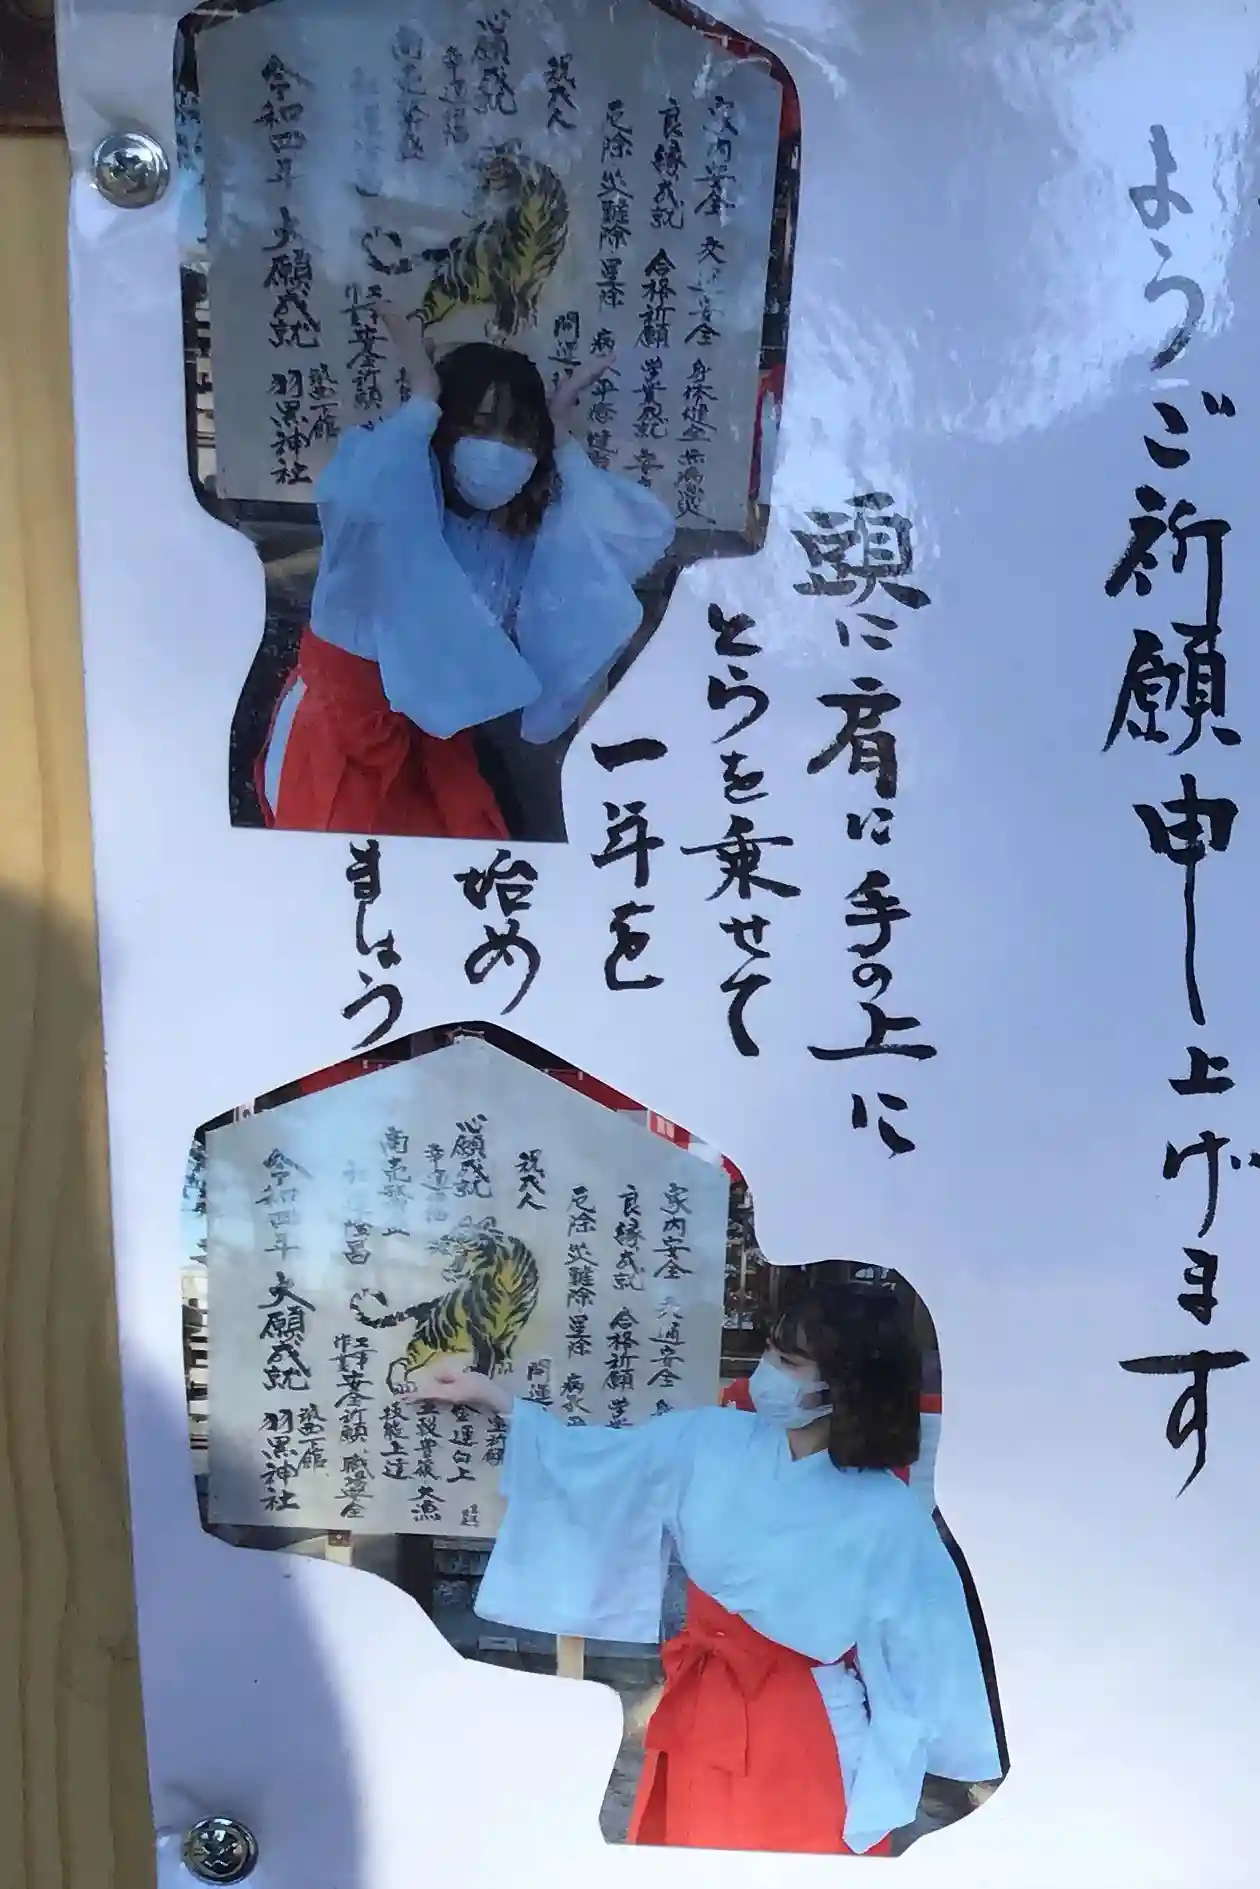 ようご祈願申し上げます
頭に肩に手の上に
とらを乗せて
一年を
始め
ましょう
家内安全 交通安全 身体健全
良縁成就 合格祈願 学業成就
厄除 災難除 星除
開運
祝大人
心願成就
幸運招福
商売繁盛
工事安全祈願
作業
令和四年 大願成就 羽黒神社
筑西下館
家内安全 交通安全
良縁成就 合格祈願
厄除 災難除 星除
祝大人
開運
心願成就
幸運招福
金運向上
商売繁盛
技能上達
五穀豊穣 大漁
社運隆昌
工事安全祈願 職場安全
作業
令和四年 大願成就 羽黒神社
筑西下館